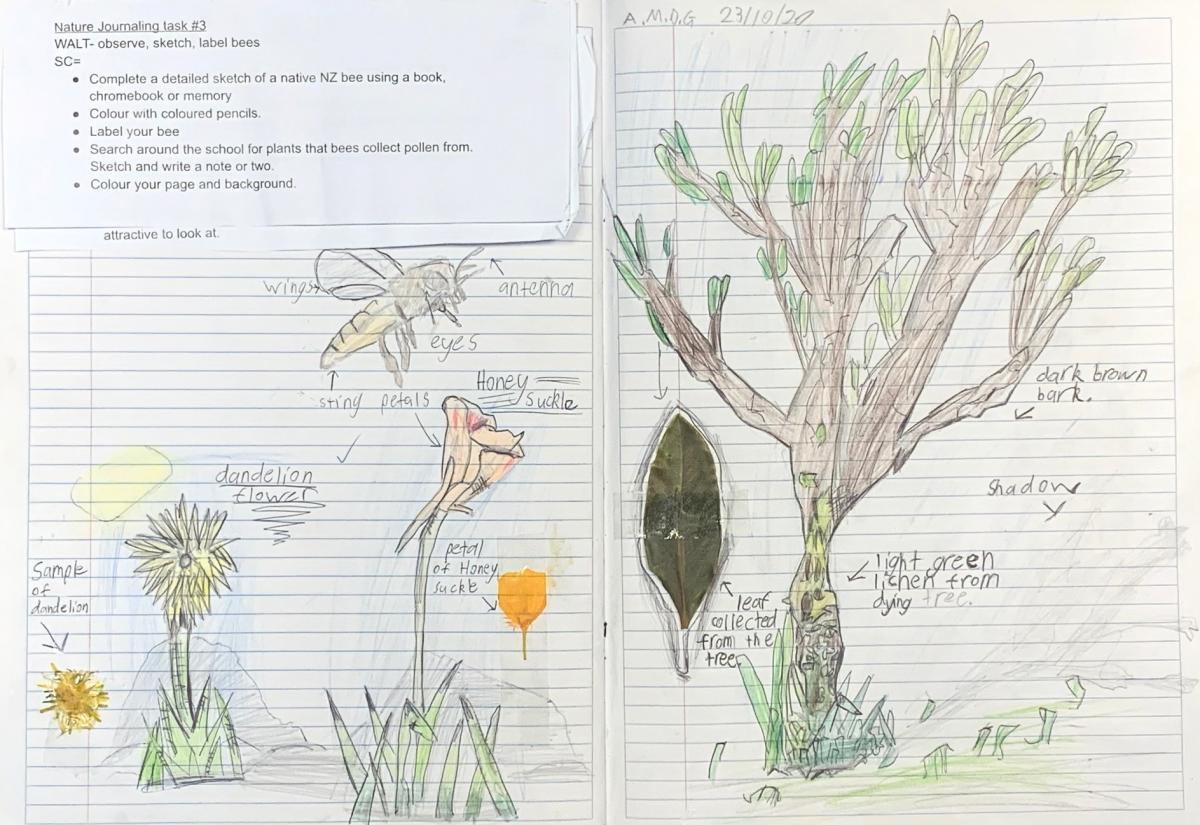 Nature Journaling task #3
WALT- observe, sketch, label bees
SC=
• Complete a detailed sketch of a native NZ bee using a book,
chromebook or memory
• Colour with coloured pencils.
• Label your bee
• Search around the school for plants that bees collect pollen from.
Sketch and write a note or two.
• Colour your page and background.
attractive to look at.
wings
antenna
eyes
sting
petals
Honey
Suckle
dandelion
flower
Sample
of
dandelion
petal
of Honey
suckle
A.M.D.G 23/10/20
dark brown
bark.
shadow
light green
lichen from
dying tree.
leaf
collected
from the
tree